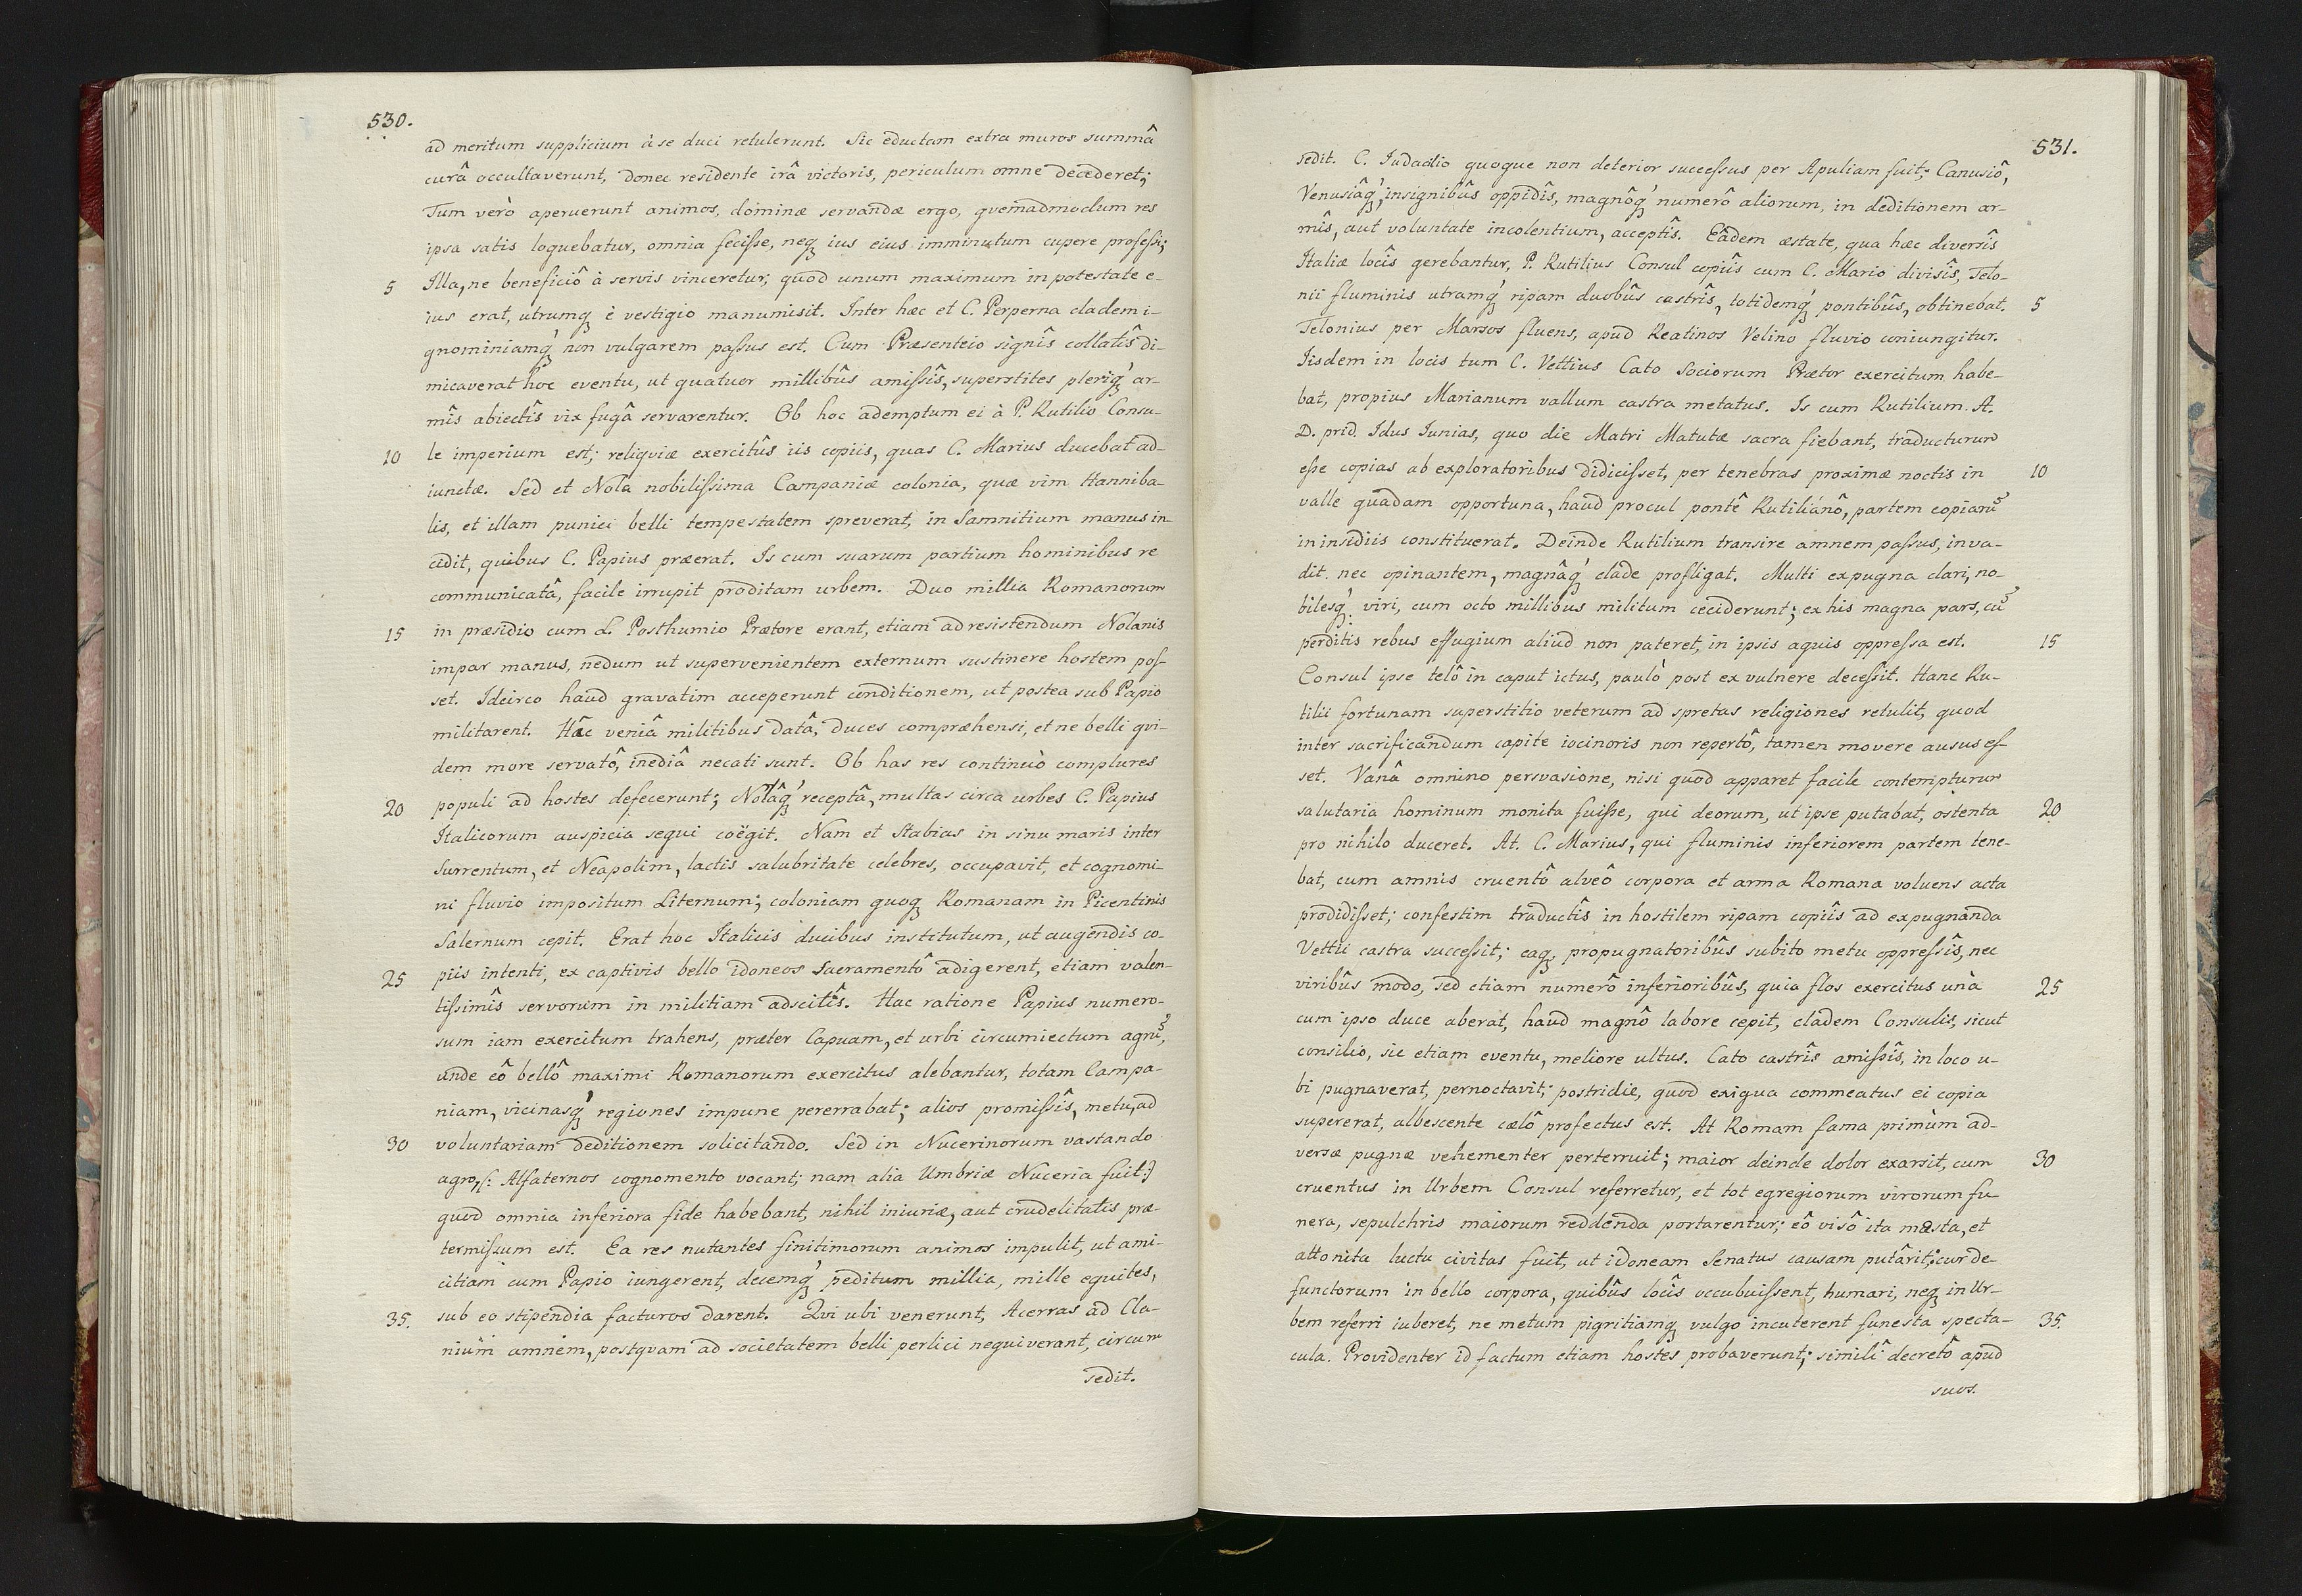 530.
ad meritum supplicium à se duci retulerunt. Sic eductam extra muros summâ
curâ occultaverunt, donec residente irâ victoris, periculum omne decederet;
Tum verò aperuerunt animos, dominæ servandæ ergo, qvemadmodum res
ipsa satis loquebatur, omnia fecisse, neq₃ ius eius imminutum cupere professi;
5 Illa, ne beneficiô à servis vinceretur, quod unum maximum in potestate e-
ius erat, utrumq₃ è vestigio manumisit. Inter hæc et C. Perperna cladem i-
gnominiamq₃́ non vulgarem passus est. Cum Præsenteio signîs collatîs di-
micaverat hôc eventu, ut quatuor millibûs amissîs, superstites pleriq₃́ ar-
mîs abiectîs vix fugâ servarentur. Ob hoc ademptum ei à P. Rutilio Consu-
10 le imperium est; reliqviæ exercitûs iis copiis, quas C. Marius ducebat ad-
iunctæ. Sed et Nola nobilissima Campaniæ colonia, quæ vim Hanniba-
lis, et illam punici belli tempestatem spreverat, in Samnitium manus in-
cidit, quibus C. Papius præerat. Is cum suarum partium hominibus re
communicatâ, facile irrupit proditam urbem. Duo millia Romanorum
15 in præsidio cum L. Posthumio Prætore erant, etiam ad resistendum Nolanis
impar manus, nedum ut supervenientem externum sustinere hostem pos-
set. Idcirco haud gravatim acceperunt conditionem, ut postea sub Papio
militarent. Hâc veniâ militibus datâ, duces compræhensi, et ne belli qvi-
dem more servatô, inediâ necati sunt. Ob has res continuò complures
20 populi ad hostes defecerunt; Nolâq₃́ receptâ, multas circa urbes C. Papius
Italicorum auspicia sequi coëgit. Nam et Stabias in sinu maris inter
Surrentum, et Neapolim, lactis salubritate celebres, occupavit, et cognomi-
ni fluvio impositum Liternum; coloniam quoq₃ Romanam in Picentinis
Salernum cepit. Erat hoc Italicis ducibus institutum, ut augendis co-
25 piis intenti, ex captivis bello idoneos sacramentô adigerent, etiam valen-
tissimîs servorum in militiam adscitîs. Hac ratione Papius numero-
sum iam exercitum trahens, præter Capuam, et urbi circumiectum agrũ,
unde eô bellô maximi Romanorum exercitus alebantur, totam Campa-
niam, vicinasq₃́ regiones impune pererrabat; alios promissîs, metu, ad
30 voluntariam deditionem solicitando. Sed in Nucerinorum vastando
agro, /: Alfaternos cognomento vocant; nam alia Umbriæ Nuceria fuit:/
quod omnia inferiora fide habebant, nihil iniuriæ, aut crudelitatis præ-
termissum est. Ea res nutantes finitimorum animos impulit, ut ami-
citiam cum Papio iungerent, decemq₃́ peditum millia, mille equites,
35. sub eo stipendia facturos darent. Qvi ubi venerunt, Acerras ad Cla-
nium amnem, postqvam ad societatem belli perlici nequiverant, circum
sedit.
531.
sedit. C. Iudacilio quoque non deterior successus per Apuliam fuit; Canusiô,
Venusiâq₃́, insignibûs oppidîs, magnôq₃́ numerô aliorum, in deditionem ar-
mîs, aut voluntate incolentium, acceptîs. Eâdem æstate, qua hæc diversîs
Italiæ locîs gerebantur, P. Rutilius Consul copiîs cum C. Mario divisîs, Telo-
nii fluminis utramq₃́ ripam duobûs castrîs, totidemq₃́ pontibûs, obtinebat. 5
Telonius per Marsos fluens, apud Reatinos Velino fluvio coniungitur.
Iisdem in locis tum C. Vettius Cato Sociorum Prætor exercitum habe-
bat, propius Marianum vallum castra metatus. Is cum Rutilium. A.
D. prid. Idus Iunias, quo die Matri Matutæ sacra fiebant, traducturum
esse copias ab exploratoribus didicisset, per tenebras proximæ noctis in 10
valle quadam opportuna, haud procul pontê Rutiliánô, partem copiarũ
in insidiis constituerat. Deinde Rutilium transire amnem passus, inva-
dit nec opinantem, magnâq₃́ clade profligat. Multi ex pugna clari, no-
bilesq₃́ viri, cum octo millibus militum ceciderunt; ex his magna pars, cũ
perditis rebus effugium aliud non pateret, in ipsis aquis oppressa est. 15
Consul ipse telô in caput ictus, paulò post ex vulnere decessit. Hanc Ru-
tilii fortunam superstitio veterum ad spretas religiones retulit, quod
inter sacrificandum capite iocinoris non repertô, tamen movere ausus es-
set. Vanâ omnino persvasione, nisi quod apparet facile contempturum
salutaria hominum monita fuisse, qui deorum, ut ipse putabat, ostenta 20
pro nihilo duceret. At. C. Marius, qui fluminis inferiorem partem tene-
bat, cum amnis cruentô alveô corpora et arma Romana voluens acta
prodidisset; confestim traductîs in hostilem ripam copiîs ad expugnanda
Vettii castra successit; eaq₃, propugnatoribûs subito metu oppressîs, nec
viribûs modo, sed etiam numerô inferioribûs, quia flos exercitus unà 25
cum ipso duce aberat, haud magnô labore cepit, cladem Consulis, sicut
consilio, sic etiam eventu, meliore ultus. Cato castrîs amissîs, in loco u-
bi pugnaverat, pernoctavit; postridie, quod exigua commeatus ei copia
supererat, albescente cælô profectus est. At Romam fama primùm ad-
versæ pugnæ vehementer perterruit; maior deinde dolor exarsit, cum 30
cruentus in Urbem Consul referretur, et tot egregiorum virorum fu
nera, sepulchris maiorum reddenda portarentur; eô visô ita mæsta, et
attonita luctu civitas fuit, ut idoneam Senatus causam putârit, cur de-
functorum in bello corpora, quibûs locîs occubuissent, humari, neq₃ in Ur-
bem referri iuberet, ne metum pigritiamq₃ vulgo incuterent funesta specta- 35.
cula. Providenter id factum etiam hostes probaverunt; similî decretô apud
suos.